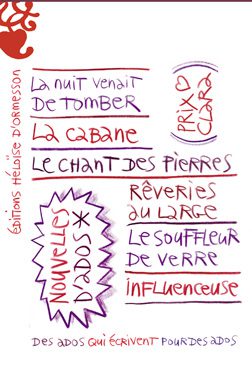 éditions Héloïse d'Ormesson
La nuit venait
de tomber
La cabane
(PRIX ♡
CLARA)
Le chant des pierres
Rêveries
au large
Le souffleur
de verre
influenceuse
NOUVELLES
D'ADOS *
Des ados qui écrivent pour des ados